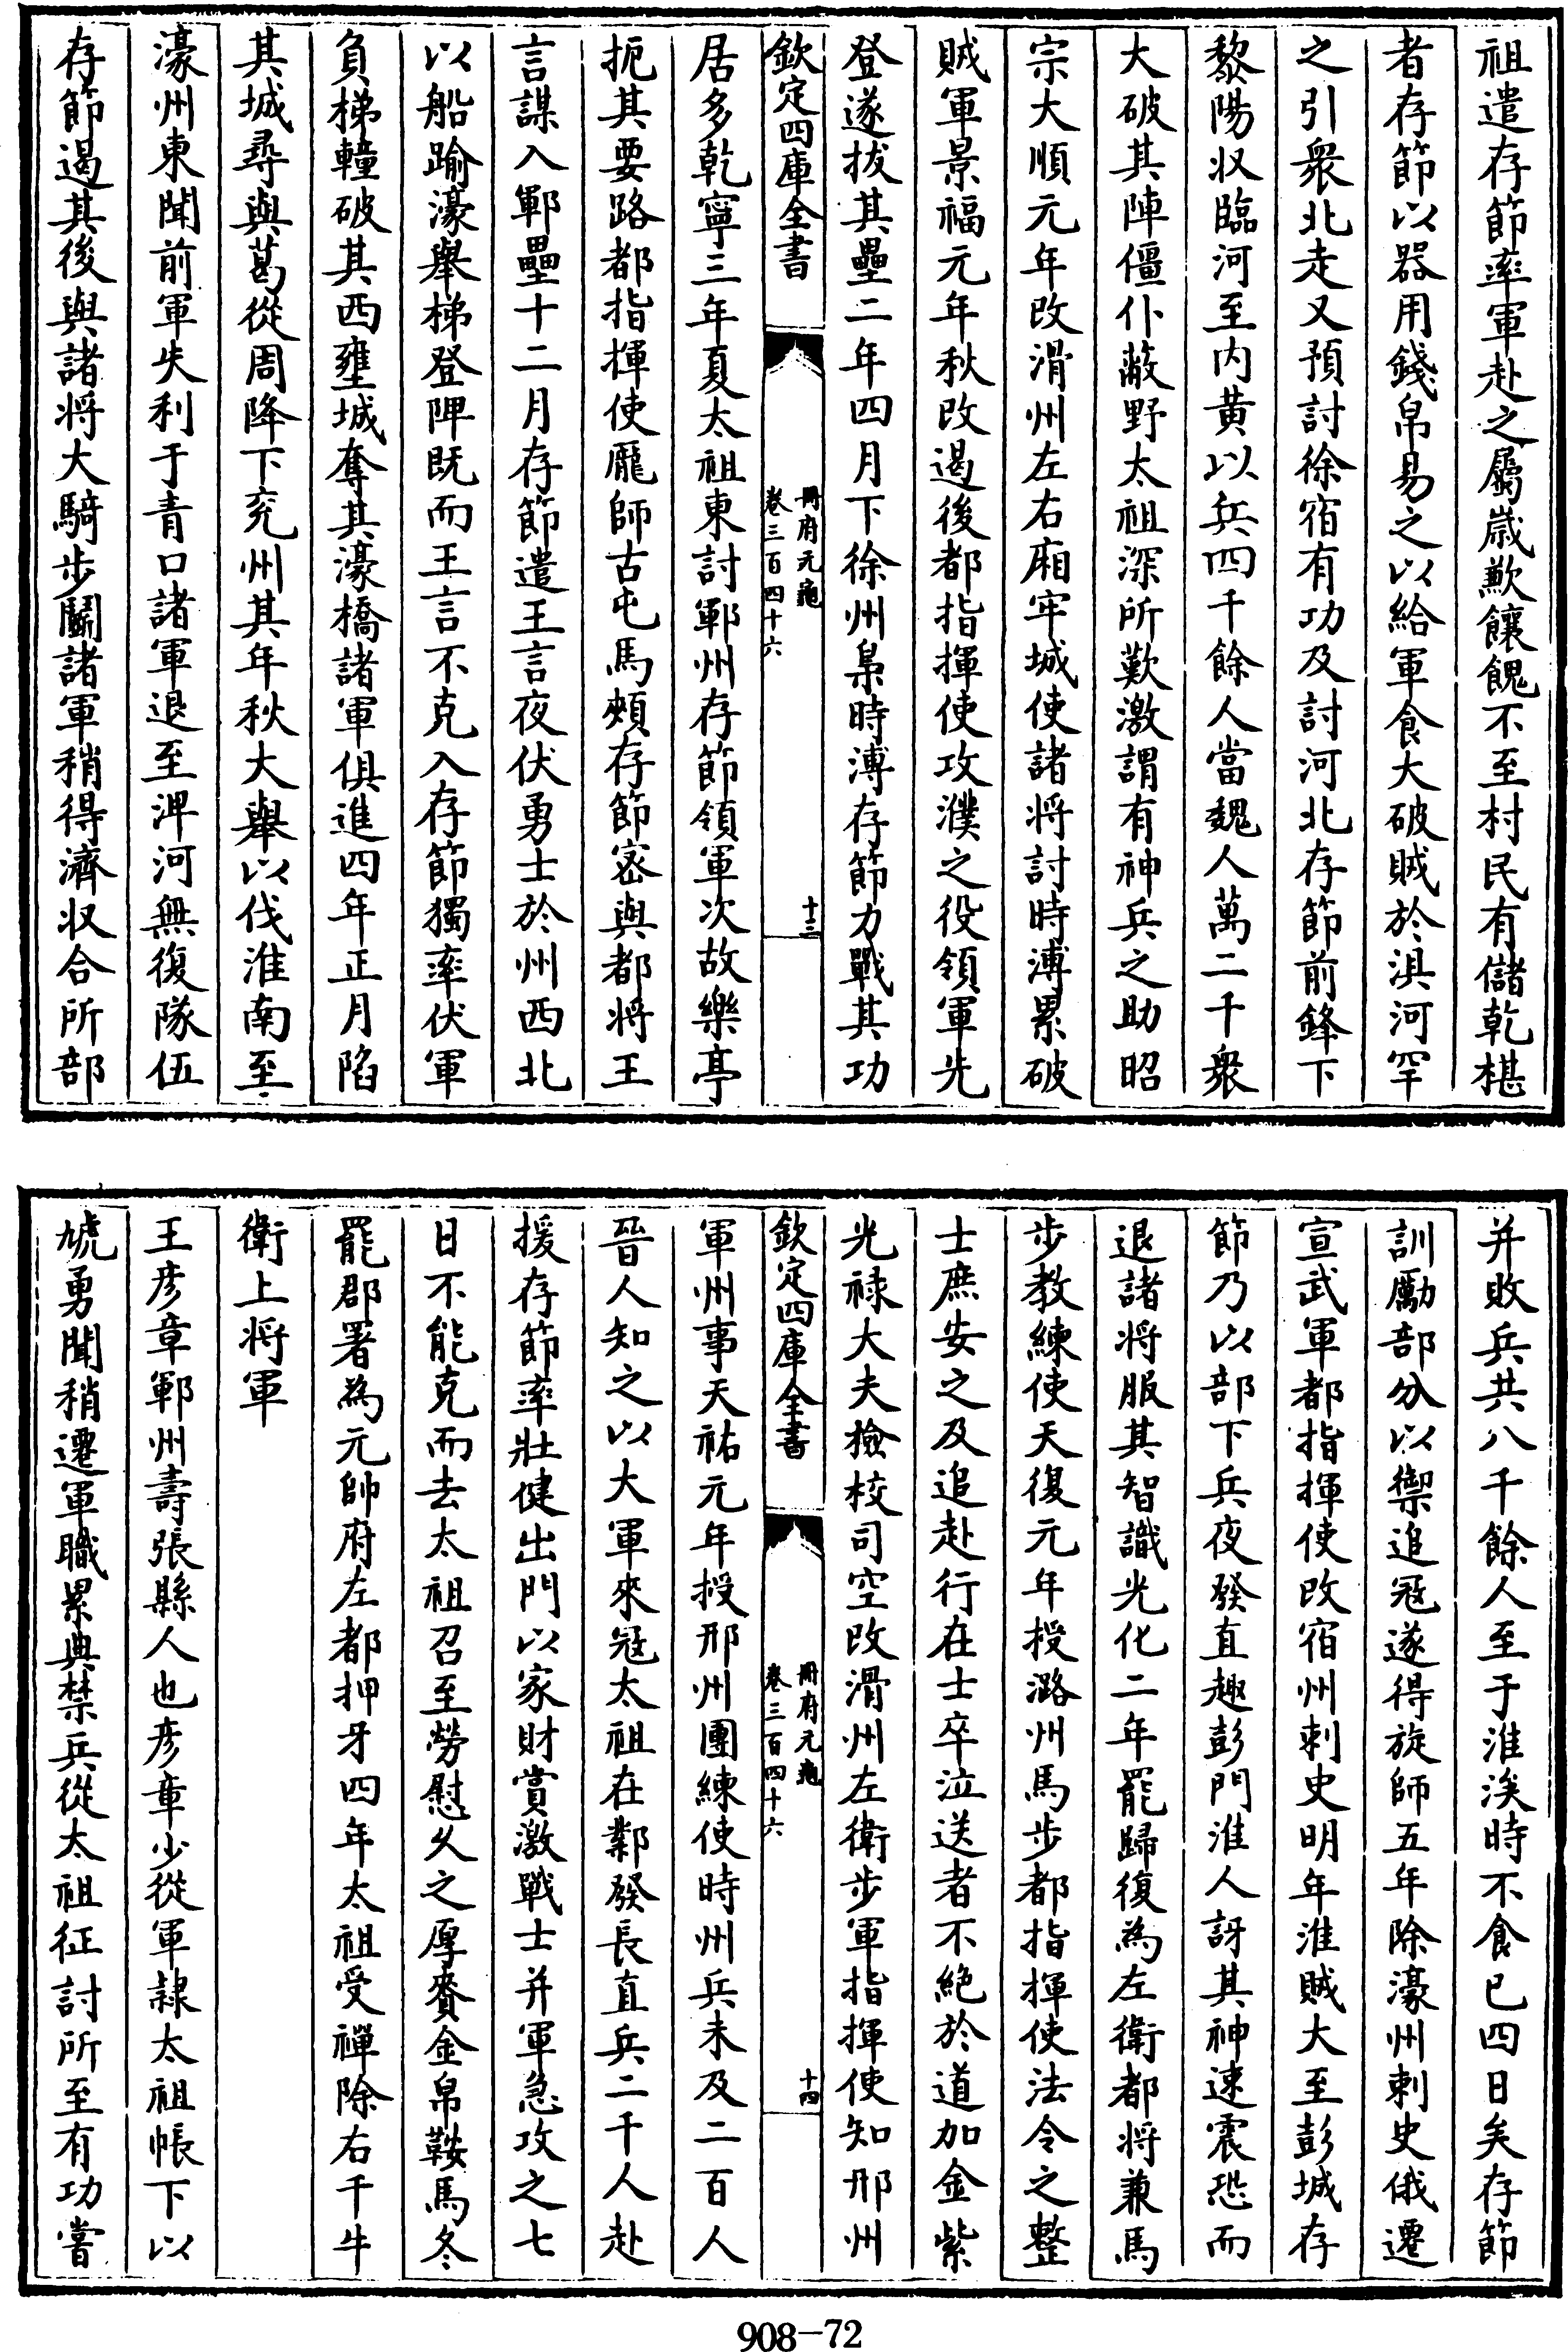 祖遣存節率軍赴之屬嵗歉饟餽不至村民有儲乾椹
者存節以器用錢帛易之以給軍食大破賊於淇河罕
之引衆北走又預討徐宿有功及討河北存節前鋒下
黎陽收臨河至内黄以兵四千餘人當魏人萬二千衆
大破其陣僵仆蔽野太祖深所歎激謂有神兵之助昭
宗大順元年改滑州左右廂牢城使諸将討時溥累破
賊軍景福元年秋改遏後都指揮使攻濮之役領軍先
登遂拔其壘二年四月下徐州梟時溥存節力戰其功
欽定四庫全書
冊府元龜
卷三百四十六
十三
居多乾寧三年夏太祖東討鄆州存節領軍次故樂亭
扼其要路都指揮使龎師古屯馬頰存節密與都将王
言謀入鄆壘十二月存節遣王言夜伏勇士於州西北
以船踰濠舉梯登陴既而王言不克入存節獨率伏軍
負梯轒破其西壅城奪其濠橋諸軍俱進四年正月陷
其城尋與葛從周降下兖州其年秋大舉以伐淮南至
濠州東聞前軍失利于青口諸軍退至淠河無復隊伍
存節遏其後與諸将大騎步鬭諸軍稍得濟收合所部
并敗兵共八千餘人至于淮涘時不食已四日矣存節
訓勵部分以禦追冦遂得旋師五年除濠州刺史俄遷
宣武軍都指揮使改宿州刺史明年淮賊大至彭城存
節乃以部下兵夜發直趣彭門淮人訝其神速震恐而
退諸将服其智識光化二年罷歸復為左衛都将兼馬
步教練使天復元年授潞州馬步都指揮使法令之整
士庶安之及追赴行在士卒泣送者不絶於道加金紫
光禄大夫檢校司空改滑州左衛步軍指揮使知邢州
欽定四庫全書
冊府元龜
卷三百四十六
十四
軍州事天祐元年授邢州團練使時州兵未及二百人
晉人知之以大軍來冦太祖在鄴發長直兵二千人赴
援存節率壯健出門以家財賞激戰士并軍急攻之七
日不能克而去太祖召至勞慰久之厚賚金帛鞍馬冬
罷郡署為元帥府左都押牙四年太祖受禪除右千牛
衛上将軍
王彦章鄆州壽張縣人也彦章少從軍隷太祖帳下以
虓勇聞稍遷軍職累典禁兵從太祖征討所至有功嘗
908-72